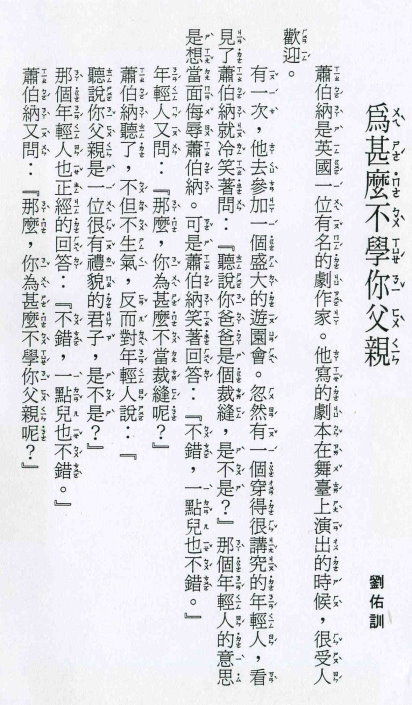 為甚麼不學你父親
劉佑訓
蕭伯納是英國一位有名的劇作家。他寫的劇本在舞臺上演出的時候，很受人
歡迎。
有一次，他去參加一個盛大的遊園會。忽然有一個穿得很講究的年輕人，看
見了蕭伯納就冷笑著問：『聽說你爸爸是個裁縫，是不是？』那個年輕人的意思
是想當面侮辱蕭伯納。可是蕭伯納笑著回答：『不錯，一點兒也不錯。』
年輕人又問：『那麼，你為甚麼不當裁縫呢？
蕭伯納聽了，不但不生氣，反而對年輕人說：『
聽說你父親是一位很有禮貌的君子，是不是？』
那個年輕人也正經的回答：『不錯，一點兒也不錯。』
蕭伯納又問：『那麼，你為甚麼不學你父親呢？』